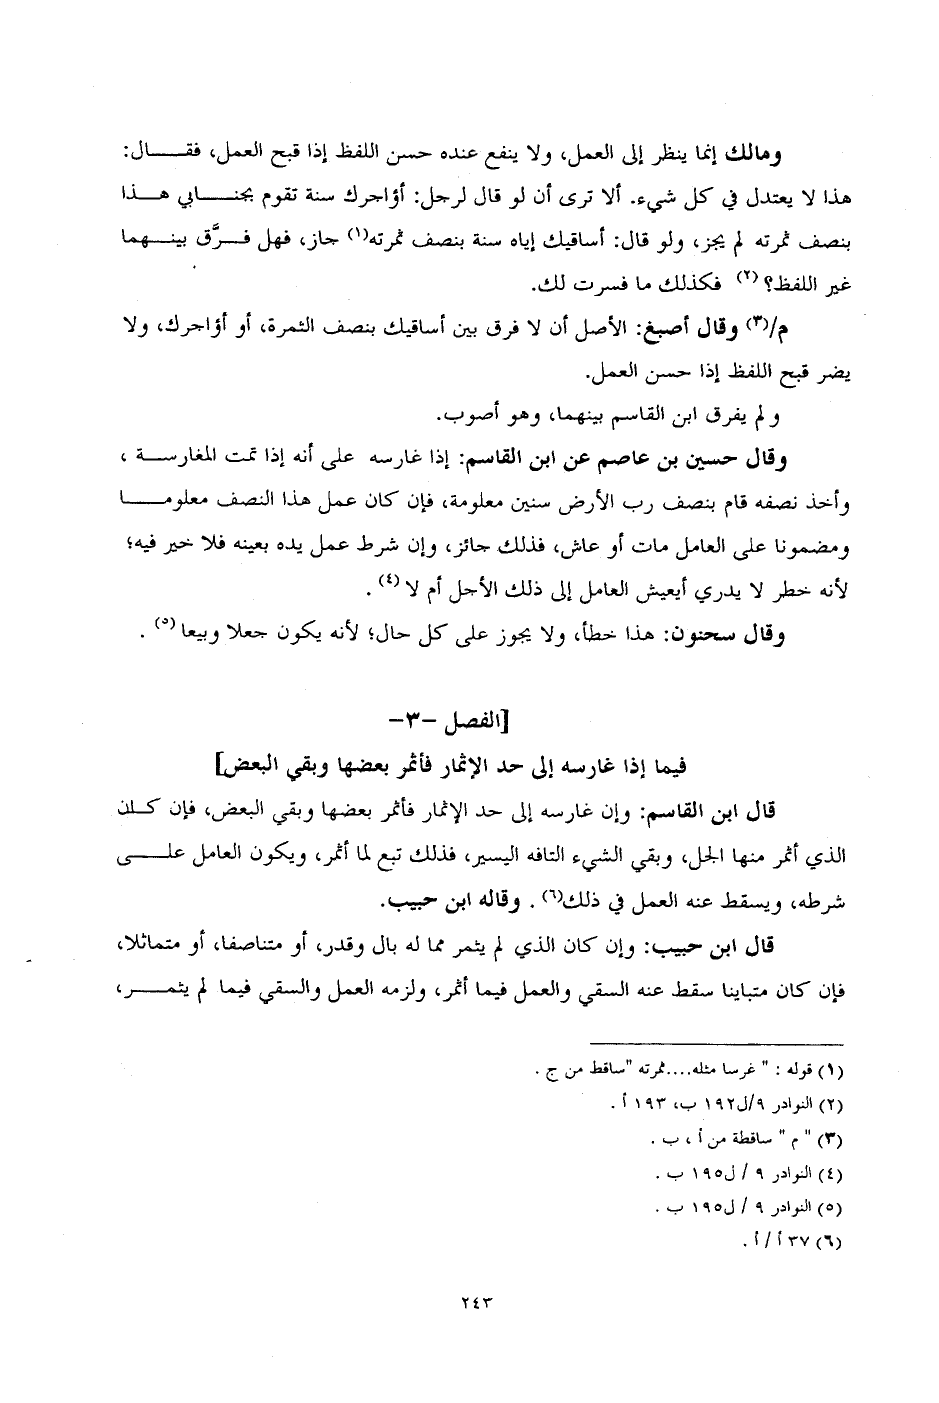 ومالك إنما ينظر إلى العمل، ولا ينفع عنده حسن اللفظ إذا قبح العمل، فقال:
هذا لا يعتدل في كل شيء. ألا ترى أن لو قال لرجل: أؤاجرك سنة تقوم بجنابي هذا
بنصف ثمرته لم يجز، ولو قال: أساقيك إياه سنة بنصف ثمرته(١) جاز، فهل فرَّق بينهما
غير اللفظ؟ (٢) فكذلك ما فسرت لك.
م/(٣) وقال أصبغ: الأصل أن لا فرق بين أساقيك بنصف الثمرة، أو أؤاجرك، ولا
يضر قبح اللفظ إذا حسن العمل.
ولم يفرق ابن القاسم بينهما، وهو أصوب.
وقال حسين بن عاصم عن ابن القاسم: إذا غارسه على أنه إذا تمت المغارسة ،
وأخذ نصفه قام بنصف رب الأرض سنين معلومة، فإن كان عمل هذا النصف معلوما
ومضمونا على العامل مات أو عاش، فذلك جائز، وإن شرط عمل يده بعينه فلا خير فيه؛
لأنه خطر لا يدري أيعيش العامل إلى ذلك الأجل أم لا (٤) .
وقال سحنون: هذا خطأ، ولا يجوز على كل حال؛ لأنه يكون جعلا وبيعا (٥) .
[الفصل -٣-
فيما إذا غارسه إلى حد الإثمار فأثمر بعضها وبقي البعض]
قال ابن القاسم: وإن غارسه إلى حد الإثمار فأثمر بعضها وبقي البعض، فإن كان
الذي أثمر منها الجل، وبقي الشيء التافه اليسير، فذلك تبع لما أثمر، ويكون العامل على
شرطه، ويسقط عنه العمل في ذلك(٦) . وقاله ابن حبيب.
قال ابن حبيب: وإن كان الذي لم يثمر مما له بال وقدر، أو متناصفا، أو متماثلا،
فإن كان متباينا سقط عنه السقي والعمل فيما أثمر، ولزمه العمل والسقي فيما لم يثمر،
(١) قوله : " غرسا مثله....ثمرته "ساقط من ج .
(٢) النوادر ٩/ل١٩٢ ب، ١٩٣ أ .
(٣) " م " ساقطة من أ ، ب .
(٤) النوادر ٩ / ل١٩٥ ب .
(٥) النوادر ٩ / ل١٩٥ ب .
(٦) ٣٧ أ / أ .
٢٤٣